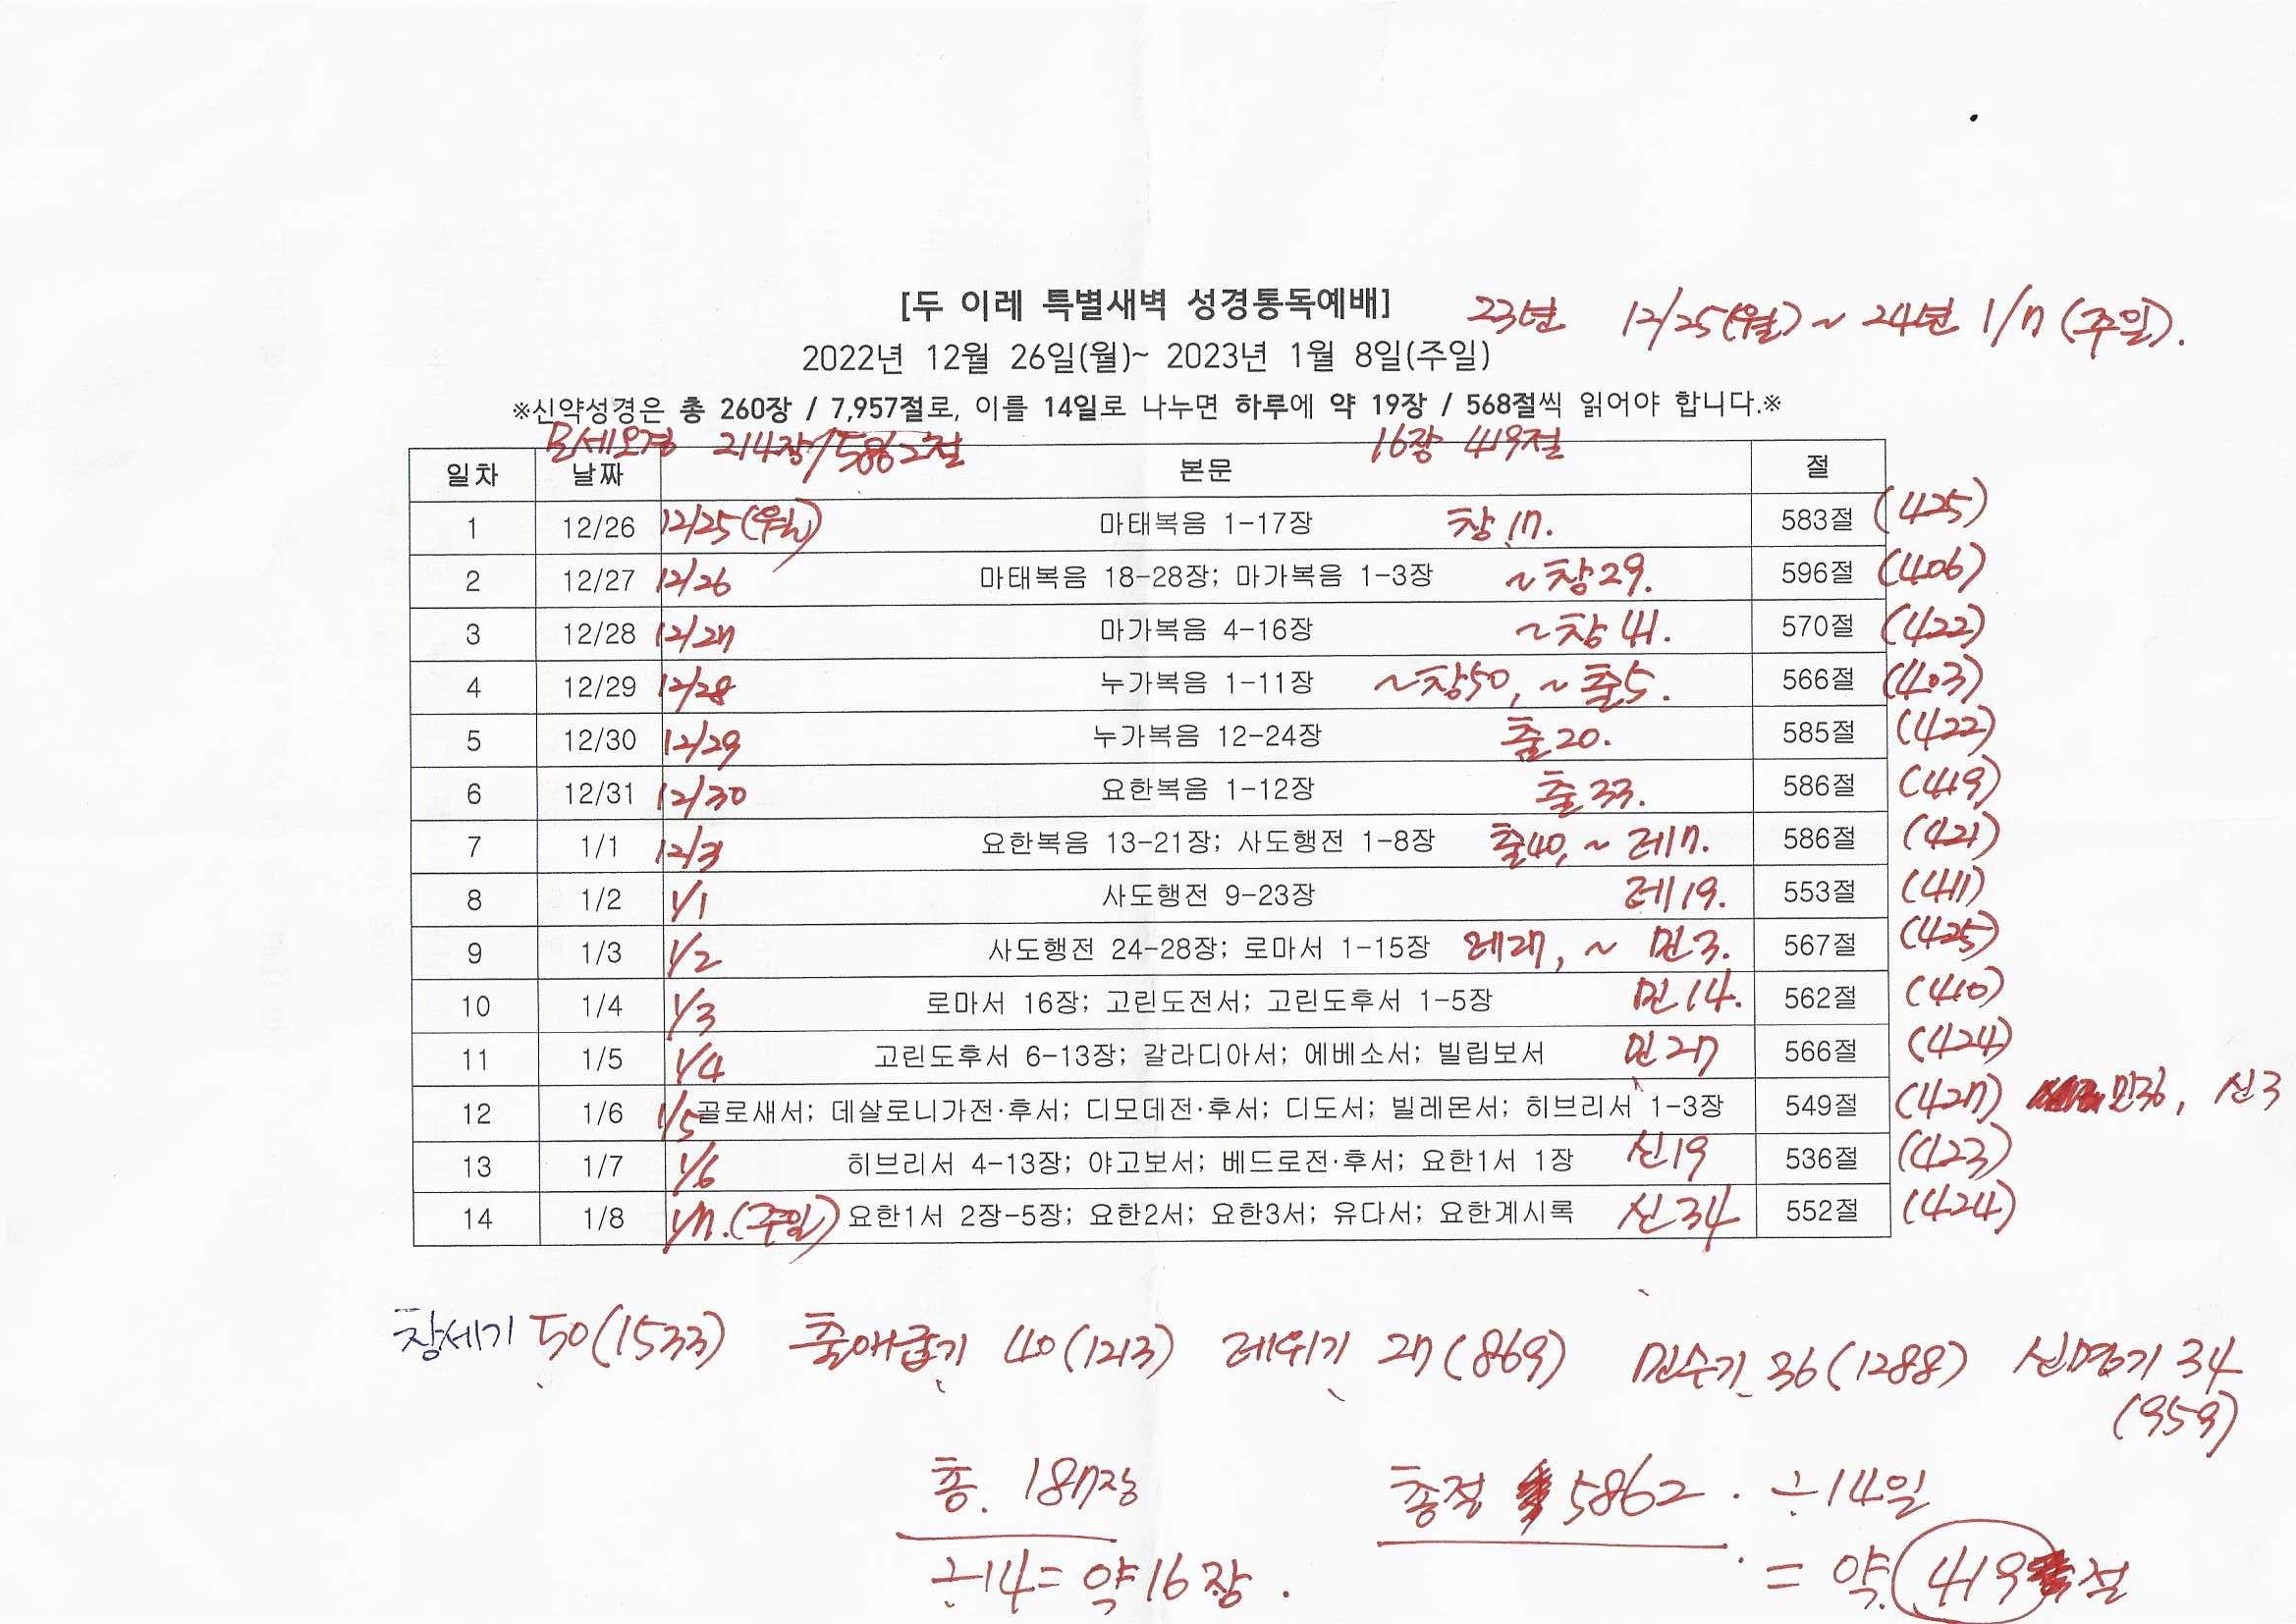 [두 이레 특별새벽 성경통독예배] 23년 12/25(월) ~ 24년 1/7 (주일).
2022년 12월 26일(월)~ 2023년 1월 8일(주일)
※신약성경은 총 260장 / 7,957절로, 이를 14일로 나누면 하루에 약 19장 / 568절씩 읽어야 합니다.※
모세오경 214장/5862절 16장 419절
일차 날짜 본문 절
1 12/26 12/25(월) 마태복음 1-17장 창 17. 583절 (425)
2 12/27 12/26 마태복음 18-28장; 마가복음 1-3장 ~ 창29. 596절 (406)
3 12/28 12/27 마가복음 4-16장 ~ 창 41. 570절 (422)
4 12/29 12/28 누가복음 1-11장 ~창50, ~ 출5. 566절 (403)
5 12/30 12/29 누가복음 12-24장 출20. 585절 (422)
6 12/31 12/30 요한복음 1-12장 출33. 586절 (419)
7 1/1 12/31 요한복음 13-21장; 사도행전 1-8장 출40, ~ 레7. 586절 (421)
8 1/2 1/1 사도행전 9-23장 레19. 553절 (411)
9 1/3 1/2 사도행전 24-28장; 로마서 1-15장 레27, ~ 민3. 567절 (425)
10 1/4 1/3 로마서 16장; 고린도전서; 고린도후서 1-5장 민14. 562절 (410)
11 1/5 1/4 고린도후서 6-13장; 갈라디아서; 에베소서; 빌립보서 민27 566절 (424)
12 1/6 1/5 골로새서; 데살로니가전·후서; 디모데전·후서; 디도서; 빌레몬서; 히브리서 1-3장 549절 (427) 민36, 신3
13 1/7 1/6 히브리서 4-13장; 야고보서; 베드로전·후서; 요한1서 1장 신19 536절 (423)
14 1/8 1/7.(주일) 요한1서 2장-5장; 요한2서; 요한3서; 유다서; 요한계시록 신34 552절 (424)
창세기 50(1533) 출애굽기 40(1213) 레위기 27(869) 민수기 36(1288) 신명기 34
(959)
총. 187장 총절 5862 . ÷14일
÷14= 약16장. = 약 419절